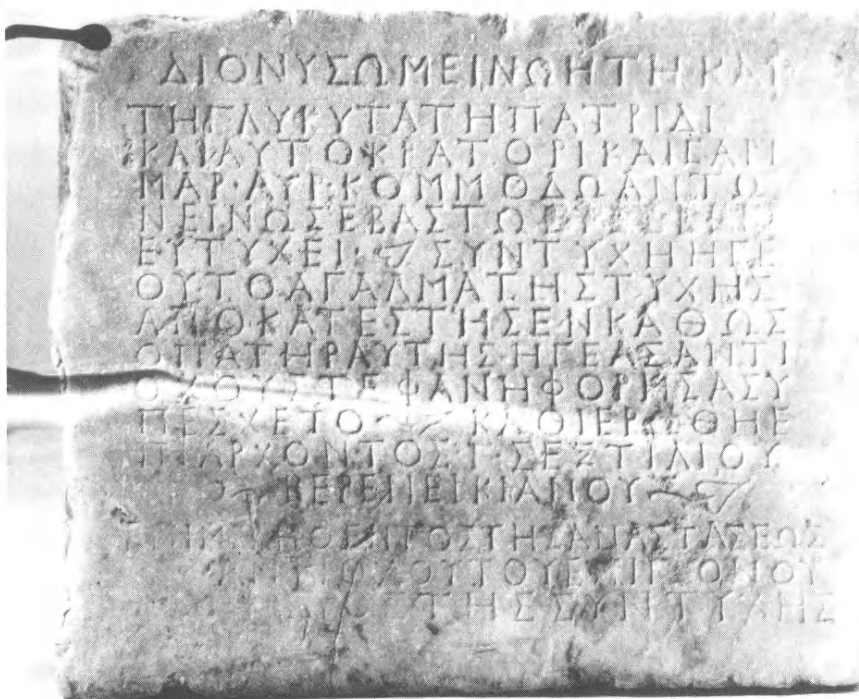 ΔΙΟΝΥΣΩΜΕΙΝΩΗΤΗΚΑΙ
ΤΗΓΛΥΚΥΤΑΤΗΠΑΤΡΙΔΙ
ΚΑΙΑΥΤΟΚΡΑΤΟΡΙΚΑΙΣΑΡΙ
ΜΑΡ·ΑΥΡ·ΚΟΜΜΟΔΩΑΝΤΩ
ΝΕΙΝΩΣΕΒΑΣΤΩ
ΕΥΤΥΧΕΙ ΣΥΝΤΥΧΗΗΓΕ
ΟΥΤΟΑΓΑΛΜΑΤΗΣΤΥΧΗΣ
ΑΠΟΚΑΤΕΣΤΗΣΕΝΚΑΘΩΣ
ΟΠΑΤΗΡΑΥΤΗΣΗΓΕΑΣΑΝΤΙ
ΟΧΟΥΣΤΕΦΑΝΗΦΟΡΗΣΑΣΥ
ΠΕΣΧΕΤΟ ΚΑΘΙΕΡΩΘΗΕ
ΠΑΡΧΟΝΤΟΣΓ·ΣΕΞΤΙΛΙΟΥ
ΒΕΡΕΠΒΕΙΚΙΑΝΟΥ
ΤΗΣΑΝΑΣΤΑΣΕΩΣ
ΤΗΣΣΥΝΤΥΧΗΣ